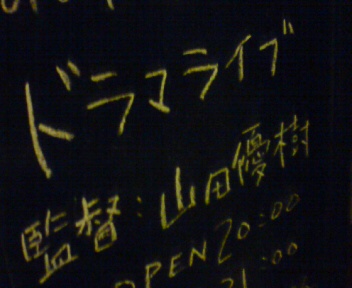 ドラマライブ
監督:山田優樹
OPEN 20:00
21:00